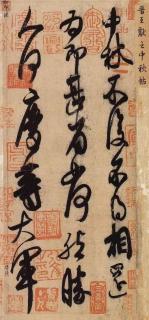 晉王獻之中秋帖
中秋不復不得相還
為即甚省如何然勝
人何慶等大軍